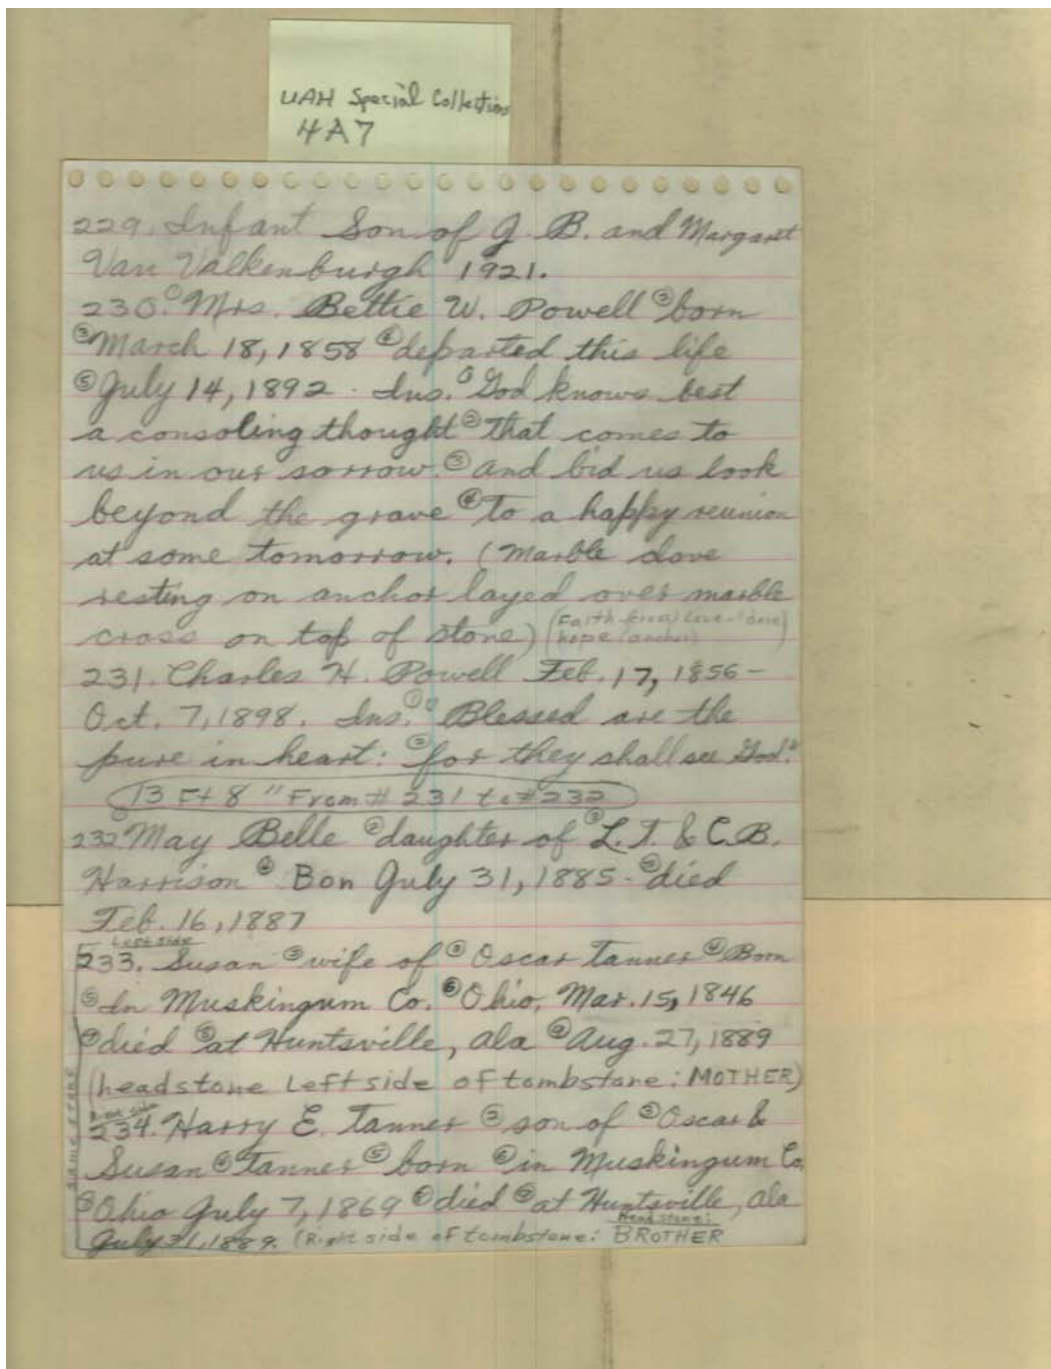 UAH Special Collections
4A7
229. Infant Son of J. B. and Margaret
Van Valkenburgh 1921.
230. ①Mrs. Bettie W. Powell ②born
③March 18, 1858 ④departed this life
⑤July 14, 1892. Ins. ①God knows best
a consoling thought ②That comes to
us in our sorrow. ③And bid us look
beyond the grave ④To a happy reunion
at some tomorrow. (Marble dove
resting on anchor layed over marble
cross on top of stone) (Faith (cross) Love-(dove)
hope (anchor)
231. Charles H. Powell Feb. 17, 1856-
Oct. 7, 1898. Ins. ①"Blessed are the
pure in heart: ②for they shall see God."
13 Ft 8" From # 231 to # 232
232 ①May Belle ②daughter of ③L. T. & C. B.
Harrison ④Bon July 31, 1885- ⑤died
Feb. 16, 1887
Left side
233. Susan ②wife of ③Oscar Tanner ④Born
⑤In Muskingum Co. ⑥Ohio, Mar. 15, 1846
⑦died ⑧at Huntsville, Ala ⑨Aug. 27, 1889
(headstone Left side of tombstone: MOTHER)
Right side
234. Harry E. Tanner ②son of ③Oscar &
Susan ④Tanner ⑤born ⑥in Muskingum Co.
⑦Ohio July 7, 1869 ⑧died ⑨at Huntsville, Ala
Headstone:
July 31, 1889. (Right side of tombstone: BROTHER
Same stone